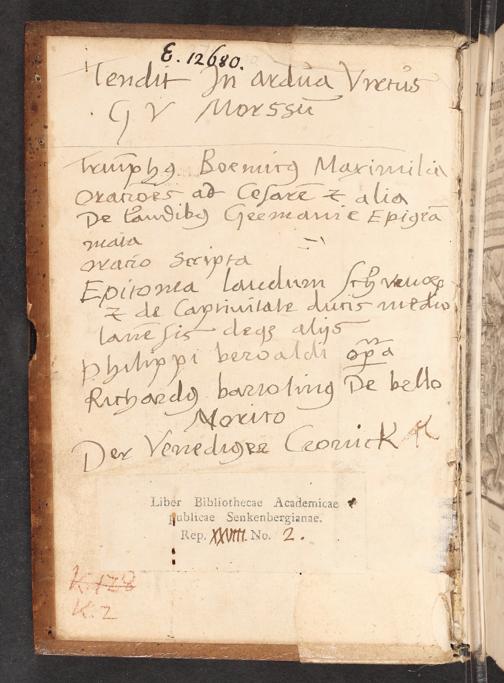 E. 12680.
Tendit In ardua Virtus
G V Morssū
Triūphꝰ Boemicꝰ Maximilia
oratiōes ad Cesarē et alia
De laudibꝰ Germanie Epigrā
mata
oratio scripta
Epitoma laudum
et de Captivitate ducis medio
lanēsis deqꝫ alijs
Philippi beroaldi opa
Richardꝰ bartolinꝰ De bello
Norico
Der Venediger Cronick K
Liber Bibliothecae Academicae
publicae Senkenbergianae.
Rep. XXVIII. No. 2.
K. 128
K. 2